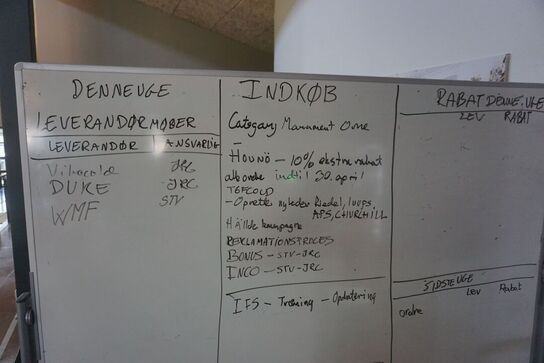 DENNE UGE
LEVERANDØRMØBER
LEVERANDØR ANSVARLIG
JRC
DUKE JRC
WMF STV
INDKØB
Category
-
HOUNÖ - 10% ekstra rabat
alle ordre indtil 30. april
TEFCOLD
- Oprette nyheder Riedel, luups,
APS, CHURCHILL
Hällde kampagne
REKLAMATIONSPROCES
BONUS - STV - JRC
INCO - STV - JRC
IFS - Træning - Opdatering
RABAT DENNE UGE
LEV RABAT
SIDSTE UGE
LEV Rabat
ordre